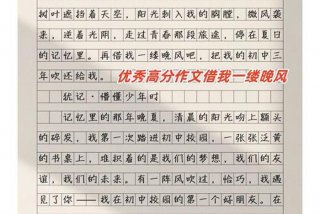 树叶遮挡着天空，阳光刺入我的胸膛，微风袭
来，逆着光阴，走过青春那段旅途，停在夏日
的记忆里。再借我一缕晚风吧，把我的初中三
年吹还给我。
优秀高分作文借我一缕晚风
犹记·懵懂少年时
记忆里，那年晚夏，清晨的阳光吻上额头
的碎发，我第一次踏进初中校园，一张张泛黄
的书桌上，堆积着的是我们的梦想，我们的友
谊，我们的未来。有一阵风吹过，恰巧，我遇
见了你——我在初中校园的第一个好朋友。在